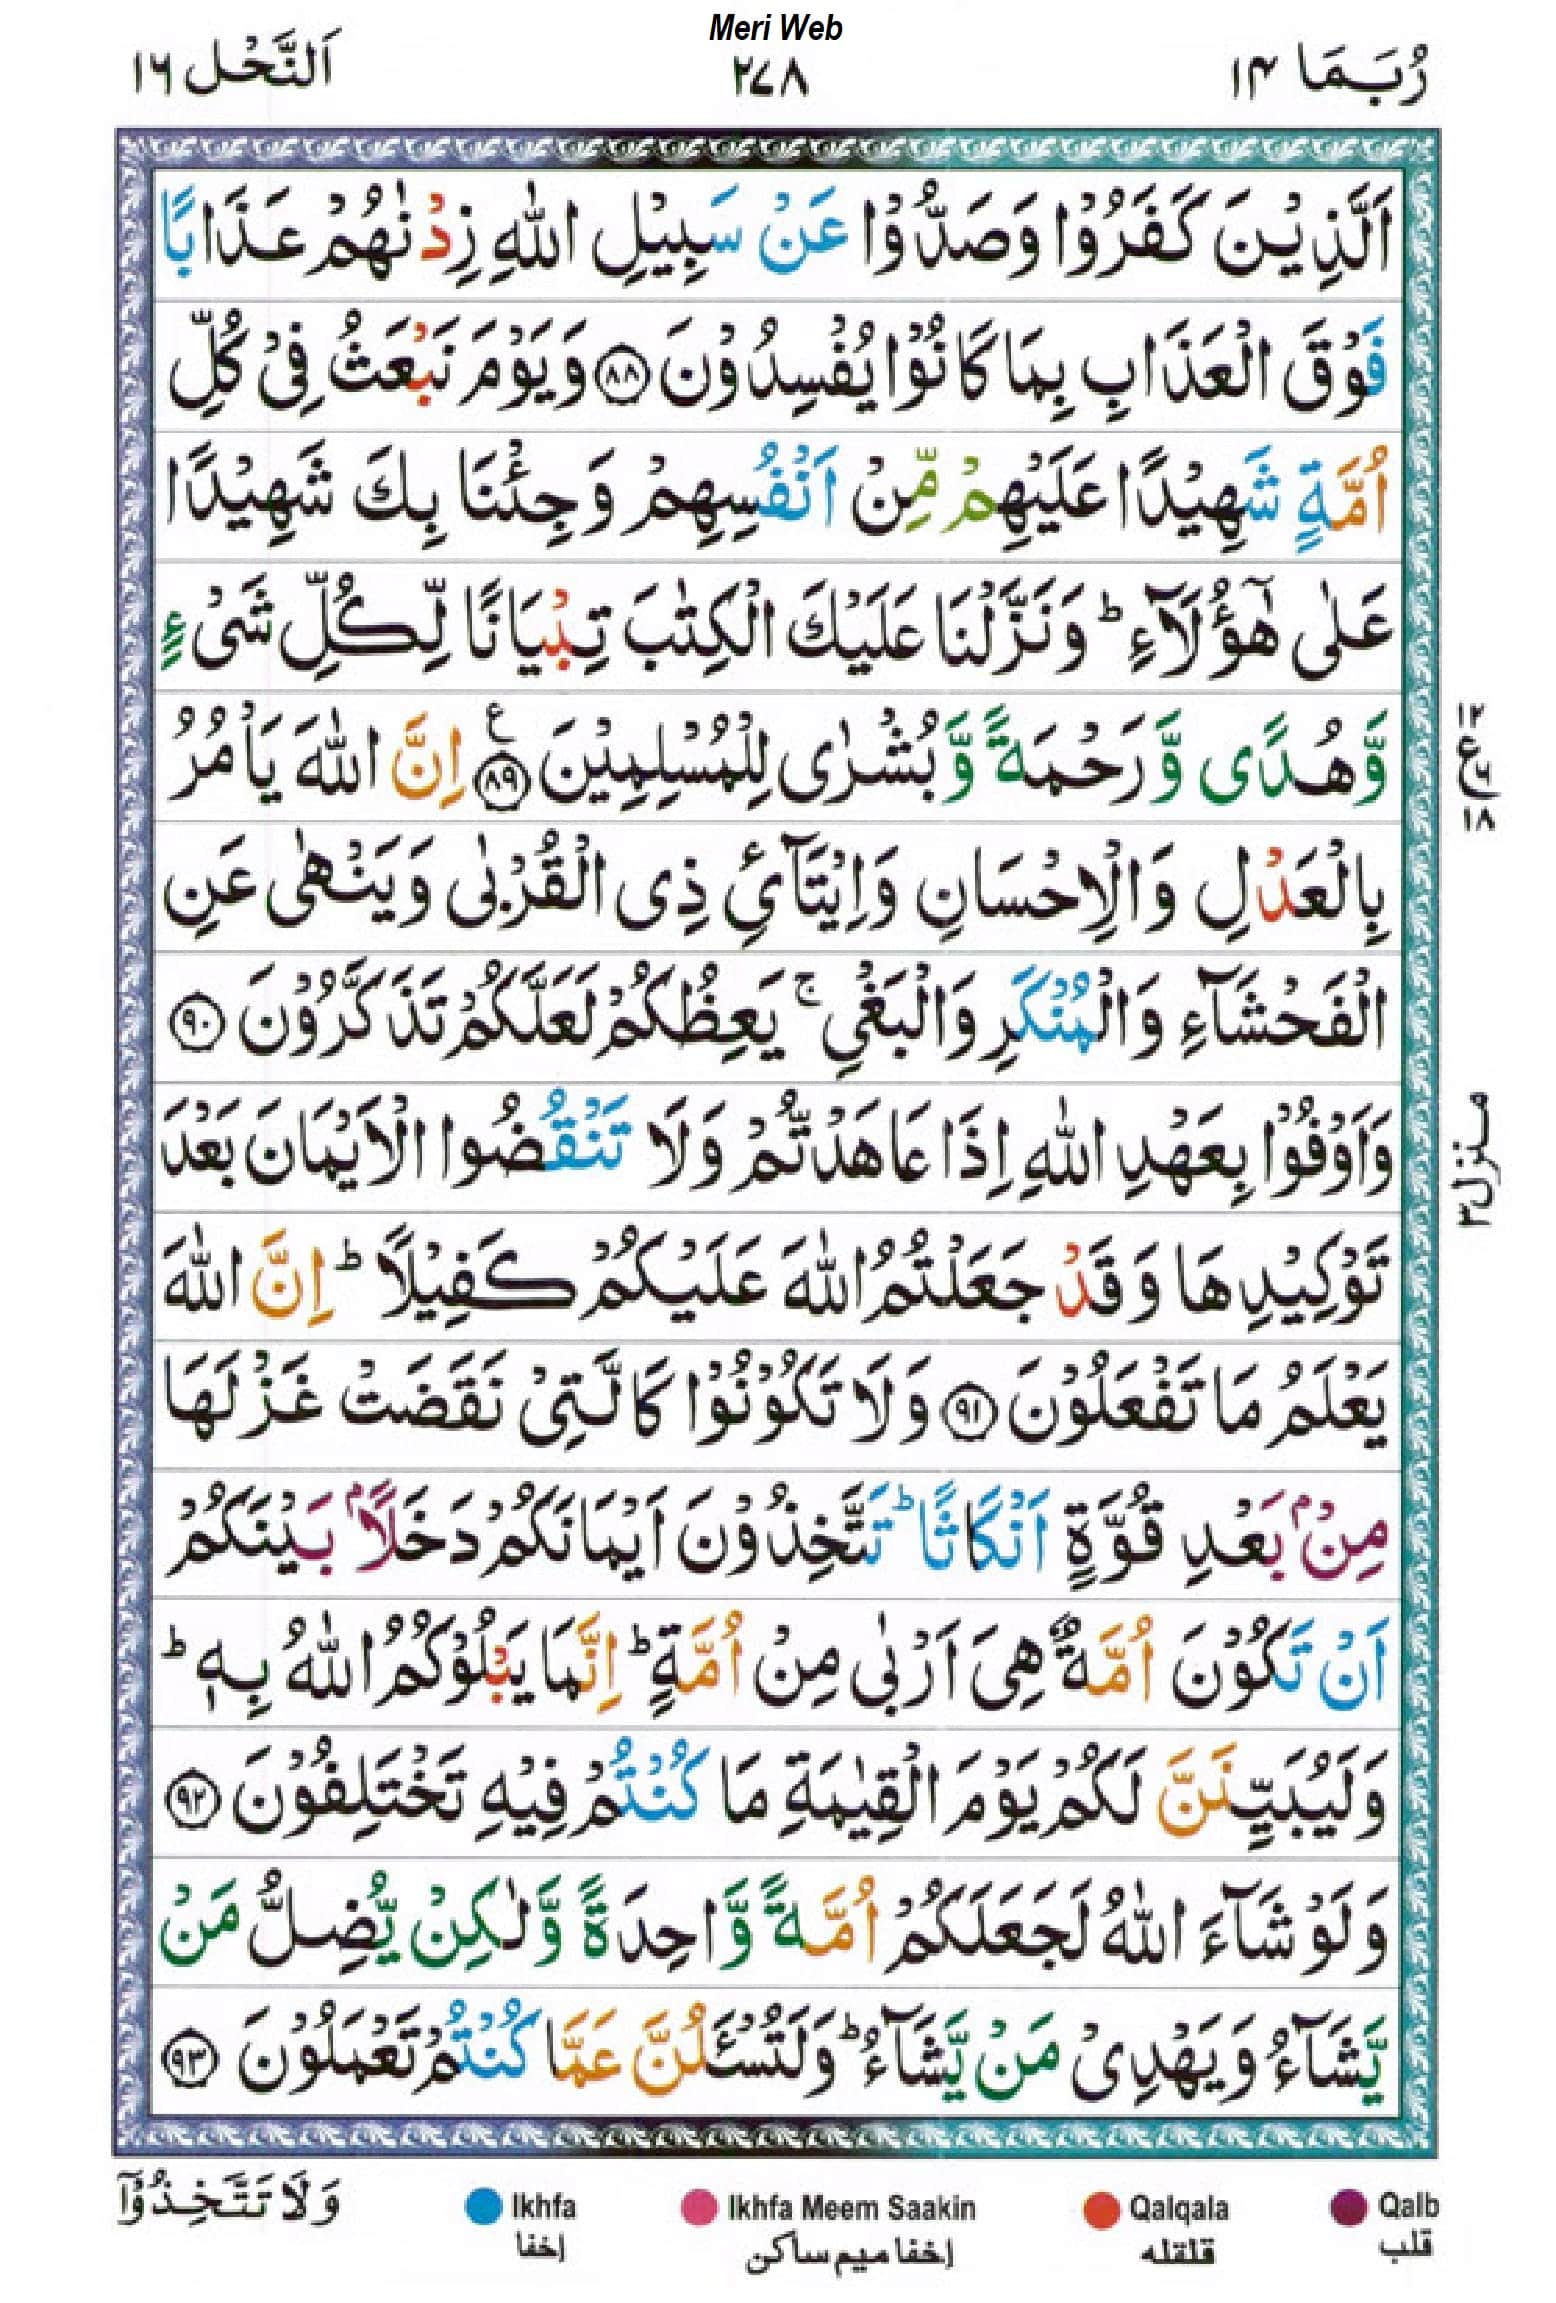 Meri Web
رُبَمَا ۱۴
۲۷۸
اَلنَّحْل ۱۶
اَلَّذِيْنَ كَفَرُوْا وَصَدُّوْا عَنْ سَبِيْلِ اللّٰهِ زِدْنٰهُمْ عَذَابًا
فَوْقَ الْعَذَابِ بِمَا كَانُوْا يُفْسِدُوْنَ ﴿۸۸﴾ وَيَوْمَ نَبْعَثُ فِىْ كُلِّ
اُمَّةٍ شَهِيْدًا عَلَيْهِمْ مِّنْ اَنْفُسِهِمْ وَجِئْنَا بِكَ شَهِيْدًا
عَلٰى هٰٓؤُلَآءِ ؕ وَنَزَّلْنَا عَلَيْكَ الْكِتٰبَ تِبْيَانًا لِّكُلِّ شَىْءٍ
وَّهُدًى وَّرَحْمَةً وَّبُشْرٰى لِلْمُسْلِمِيْنَ ﴿۸۹﴾ ع اِنَّ اللّٰهَ يَاْمُرُ
۱۲
ع
۶
۱۸
بِالْعَدْلِ وَالْاِحْسَانِ وَاِيْتَآئِ ذِى الْقُرْبٰى وَيَنْهٰى عَنِ
الْفَحْشَآءِ وَالْمُنْكَرِ وَالْبَغْىِ ۚ يَعِظُكُمْ لَعَلَّكُمْ تَذَكَّرُوْنَ ﴿۹۰﴾
وَاَوْفُوْا بِعَهْدِ اللّٰهِ اِذَا عَاهَدْتُّمْ وَلَا تَنْقُضُوا الْاَيْمَانَ بَعْدَ
منزل ۳
تَوْكِيْدِهَا وَقَدْ جَعَلْتُمُ اللّٰهَ عَلَيْكُمْ كَفِيْلًا ؕ اِنَّ اللّٰهَ
يَعْلَمُ مَا تَفْعَلُوْنَ ﴿۹۱﴾ وَلَا تَكُوْنُوْا كَالَّتِىْ نَقَضَتْ غَزْلَهَا
مِنْۢ بَعْدِ قُوَّةٍ اَنْكَاثًا ؕ تَتَّخِذُوْنَ اَيْمَانَكُمْ دَخَلًاۢ بَيْنَكُمْ
اَنْ تَكُوْنَ اُمَّةٌ هِىَ اَرْبٰى مِنْ اُمَّةٍ ؕ اِنَّمَا يَبْلُوْكُمُ اللّٰهُ بِهٖ ؕ
وَلَيُبَيِّنَنَّ لَكُمْ يَوْمَ الْقِيٰمَةِ مَا كُنْتُمْ فِيْهِ تَخْتَلِفُوْنَ ﴿۹۲﴾
وَلَوْ شَآءَ اللّٰهُ لَجَعَلَكُمْ اُمَّةً وَّاحِدَةً وَّلٰكِنْ يُّضِلُّ مَنْ
يَّشَآءُ وَيَهْدِىْ مَنْ يَّشَآءُ ؕ وَلَتُسْـَٔلُنَّ عَمَّا كُنْتُمْ تَعْمَلُوْنَ ﴿۹۳﴾
وَلَا تَتَّخِذُوْٓا
Ikhfa
اخفا
Ikhfa Meem Saakin
اخفا میم ساکن
Qalqala
قلقله
Qalb
قلب